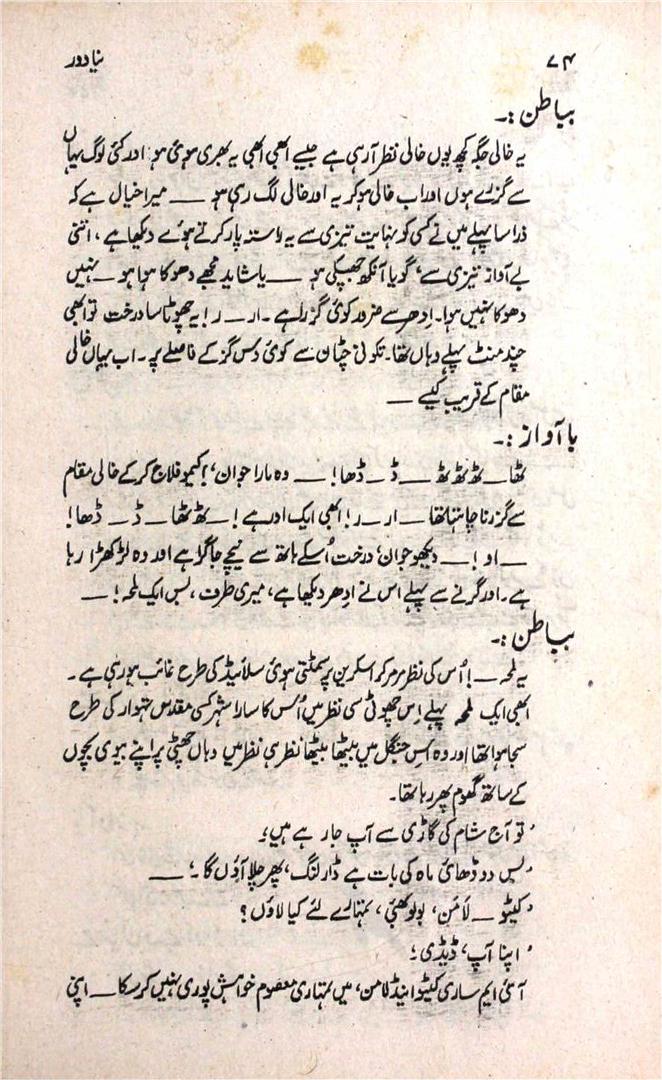 ۷۴ نیا دور
بباطن :۔
یہ خالی جگہ کچھ یوں خالی نظر آرہی ہے جیسے ابھی ابھی یہ بھری ہوئی ہو اور کئی لوگ یہاں
سے گزرے ہوں اور اب خالی ہوکر یہ اور خالی لگ رہی ہو ــــ میرا خیال ہے کہ
ذرا سا پہلے میں نے کسی کو نہایت تیزی سے یہ راستہ پار کرتے ہوئے دیکھا ہے، اتنی
بے آواز تیزی سے، گویا آنکھ جھپکی ہو ــــ یا شاید مجھے دھوکا ہوا ہو ــ نہیں
دھوکا نہیں ہوا۔ اِدھر سے ضرور کوئی گزرا ہے ۔ ار ــ ر! یہ چھوٹا سا درخت تو ابھی
چند منٹ پہلے وہاں تھا۔ تکونی چٹان سے کوئی دس گز کے فاصلے پر۔ اب یہاں خالی
مقام کے قریب کیسے ــــ
با آواز :۔
ٹھا ــ ٹھ ٹھ ٹھ ــــ ڈ ــ ڈھا! ــــ وہ مارا جوان،! کیموفلاج کرکے خالی مقام
سے گزرنا چاہتا تھا ــــ ار ــ ر! ابھی ایک اور ہے! ــ ٹھ ٹھا ــ ڈ ــ ڈھا!
ــــ او! ــــ دیکھو جوان، درخت اُسکے ہاتھ سے نیچے جاگرا ہے اور وہ لڑکھڑا رہا
ہے۔ اور گرنے سے پہلے اس نے اِدھر دیکھا ہے، میری طرف، بس ایک لمحہ! ــــ
بباطن :۔
یہ لمحہ ــــ! اُس کی نظر مرمر کر اسکرین پر سمٹتی ہوئی سلائیڈ کی طرح غائب ہورہی ہے۔
ابھی ایک لمحہ پہلے اِس چھوٹی سی نظر میں اُس کا سارا شہر کسی مقدس تہوار کی طرح
سجا ہوا تھا اور وہ اس جنگل میں بیٹھا بیٹھا نظر ہی نظر میں وہاں چھٹی پر اپنے بیوی بچوں
کے ساتھ گھوم پھر رہا تھا۔
’ تو آج شام کی گاڑی سے آپ جا رہے ہیں‘؛
’ بس دو ڈھائی ماہ کی بات ہے ڈارلنگ، پھر چلا آؤں گا ۔‘ ــــ
’ کیٹو ــــ لامن، بولو بھئی، تمہارے لئے کیا لاؤں؟
’ اپنا آپ، ڈیڈی ؛
آئی ایم ساری کیٹو اینڈ لامن، میں تمہاری معصوم خواہش پوری نہیں کرسکا ــــ اپنی